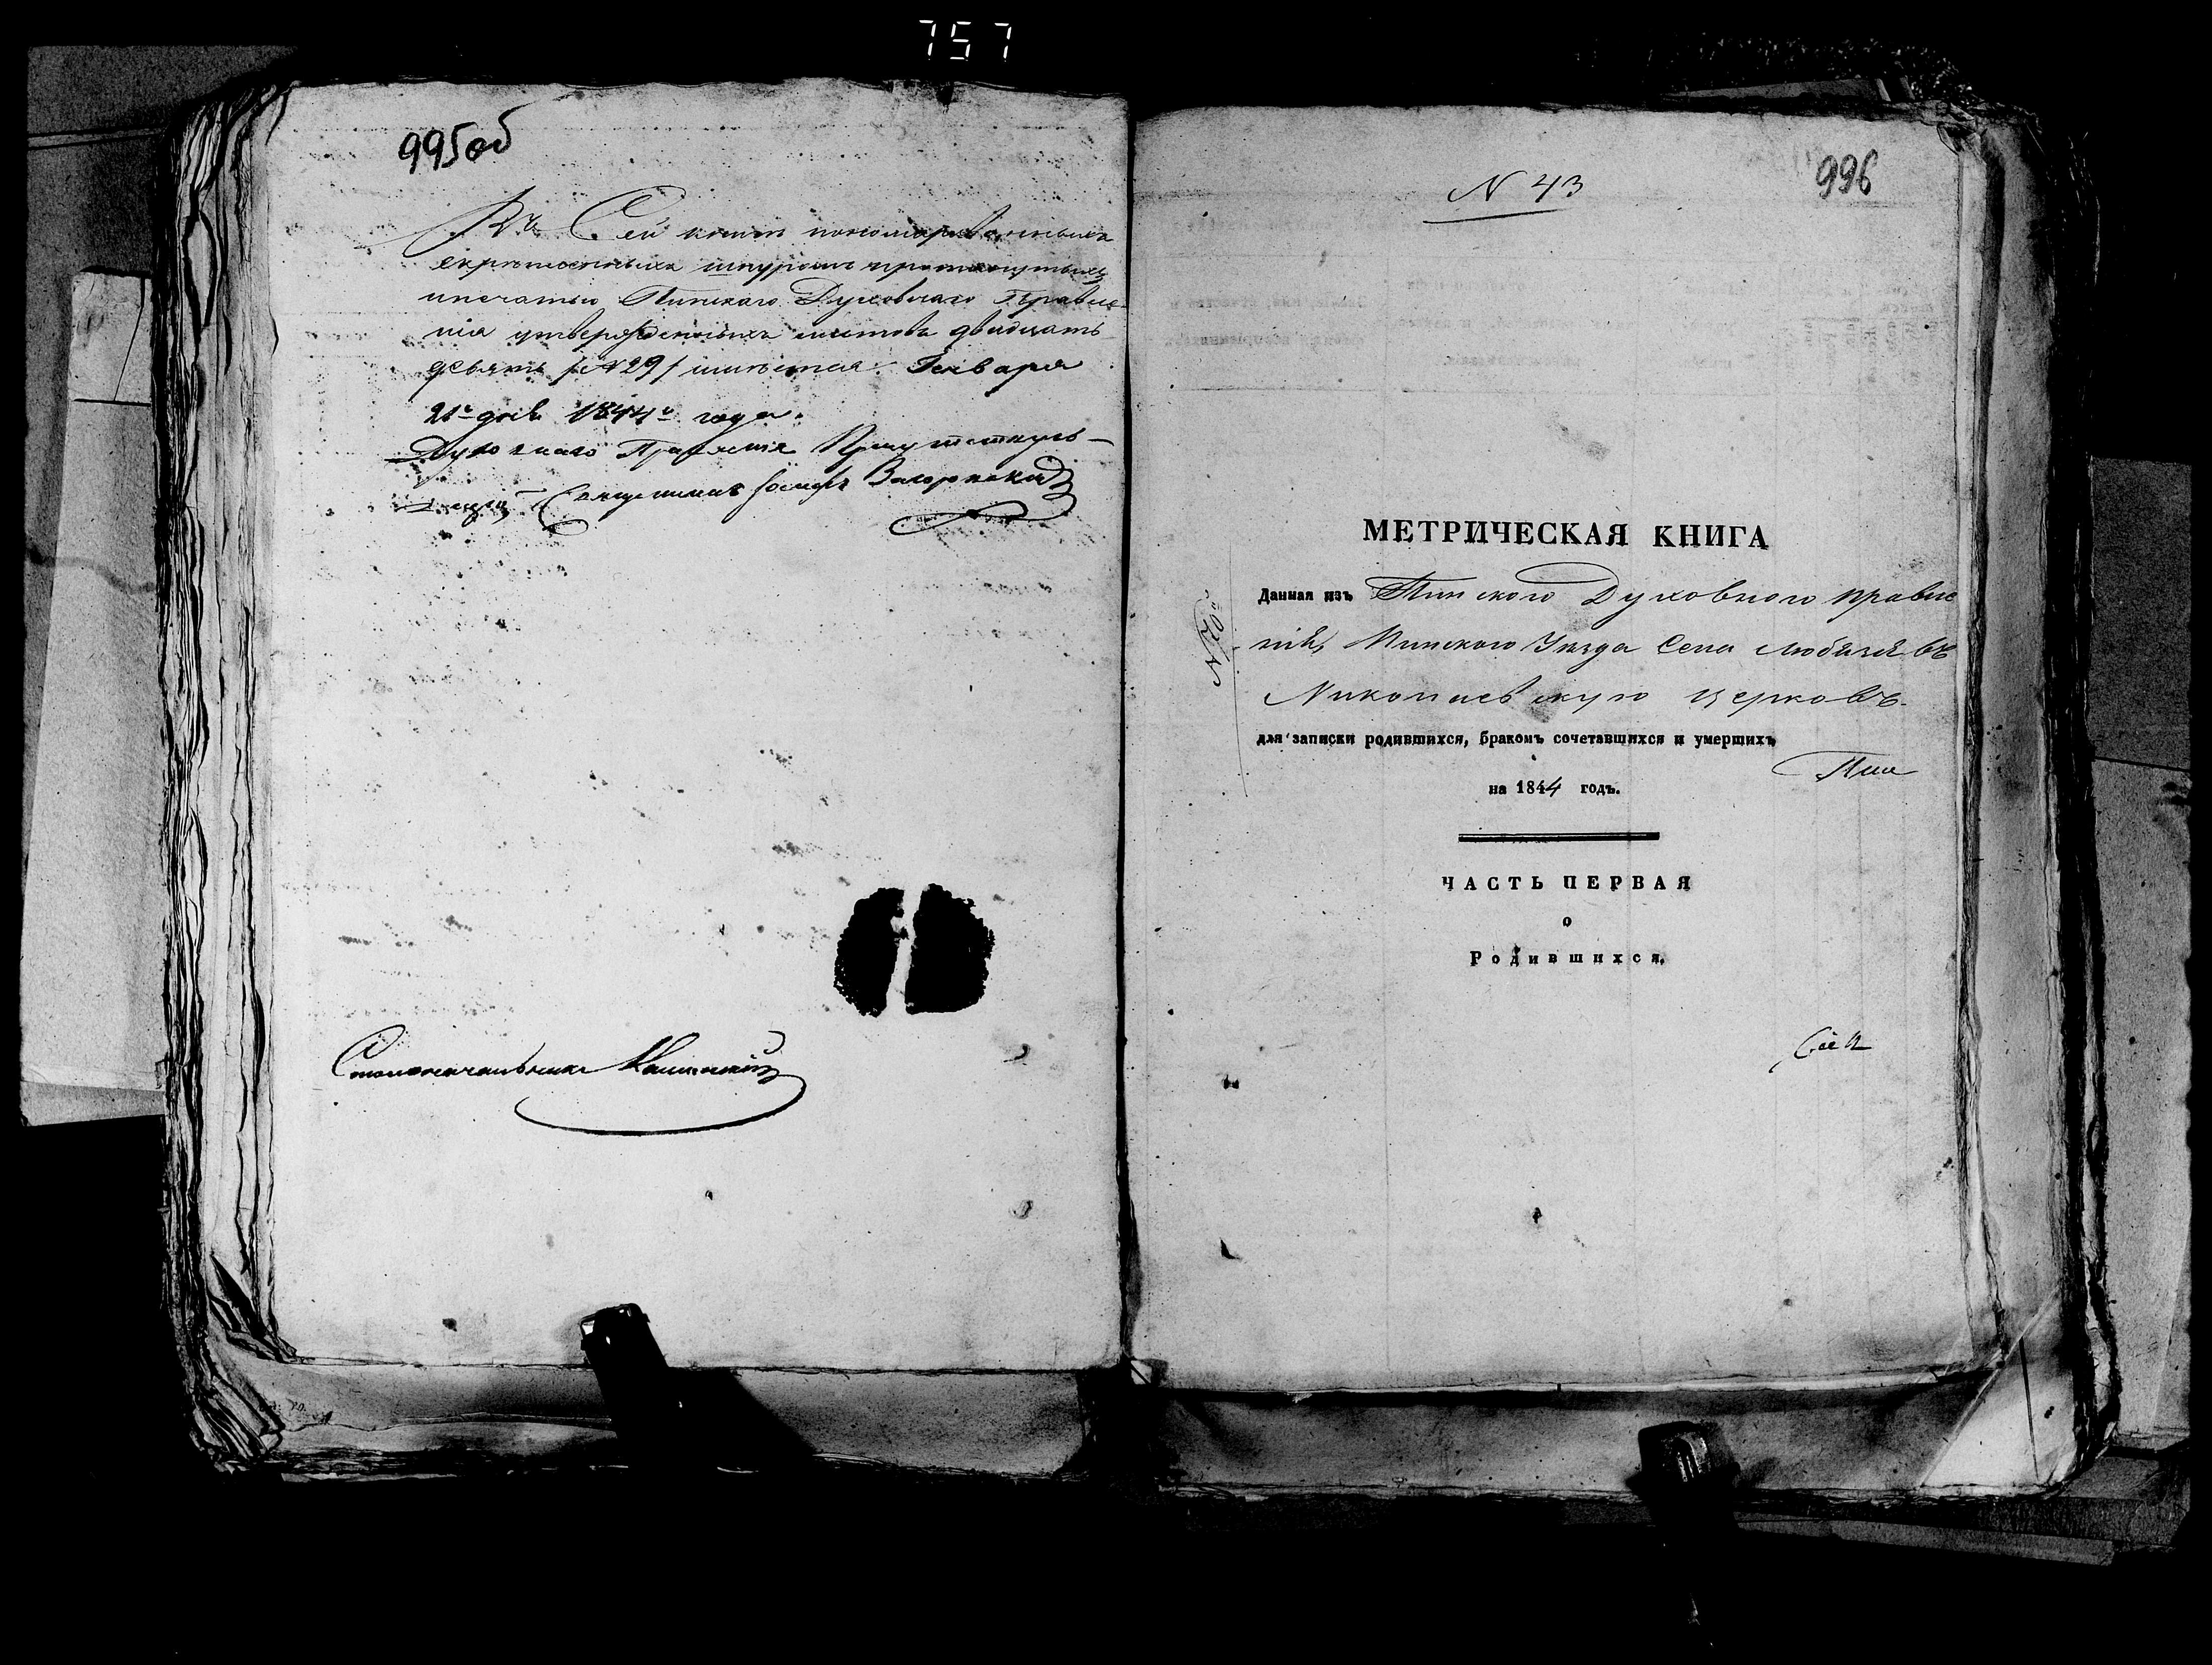 757
995об
Въ Сей книгѣ пономерованныхъ
скрѣпленныхъ шнуромъ протянутыхъ
и печатью Пинскаго Духовнаго Правле-
нія утвержденныхъ листовъ двадцать
девять /№ 29/ имѣется. Генваря
21го дня 1844го года.
Духовнаго Правленія Присутству-
ющій Священникъ Іосифъ
Столоначальникъ
996
N 43
МЕТРИЧЕСКАЯ КНИГА
Данная изъ Пинского Духовного правле
нія, Пинского Уѣзда Села Любязя въ
Николаевскую церковь.
для записки родившихся, бракомъ сочетавшихся и умершихъ
Пин
на 1844 годъ.
ЧАСТЬ ПЕРВАЯ
о
Родившихся.